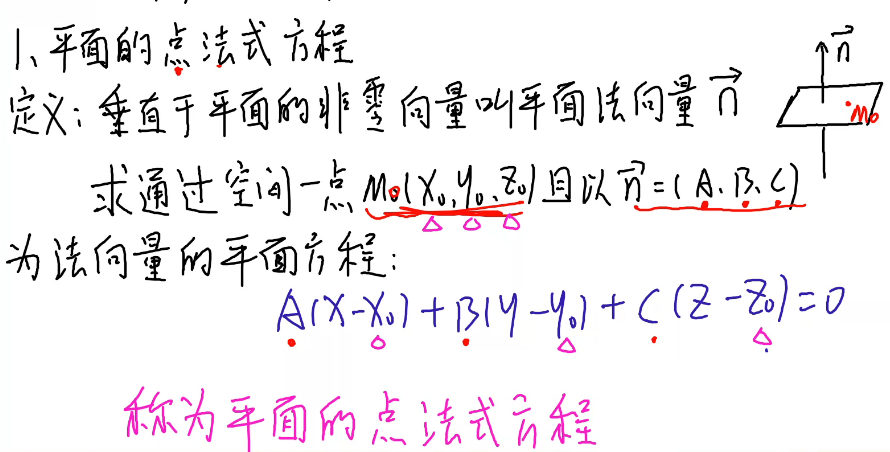 1、平面的点法式方程
定义：垂直于平面的非零向量叫平面法向量 n⃗
求通过空间一点 M₀(X₀,y₀,Z₀)且以 n⃗=(A.B.C)
为法向量的平面方程：
A(X-X₀)+B(y-y₀)+C(Z-Z₀)=0
称为平面的点法式方程
n⃗
M₀